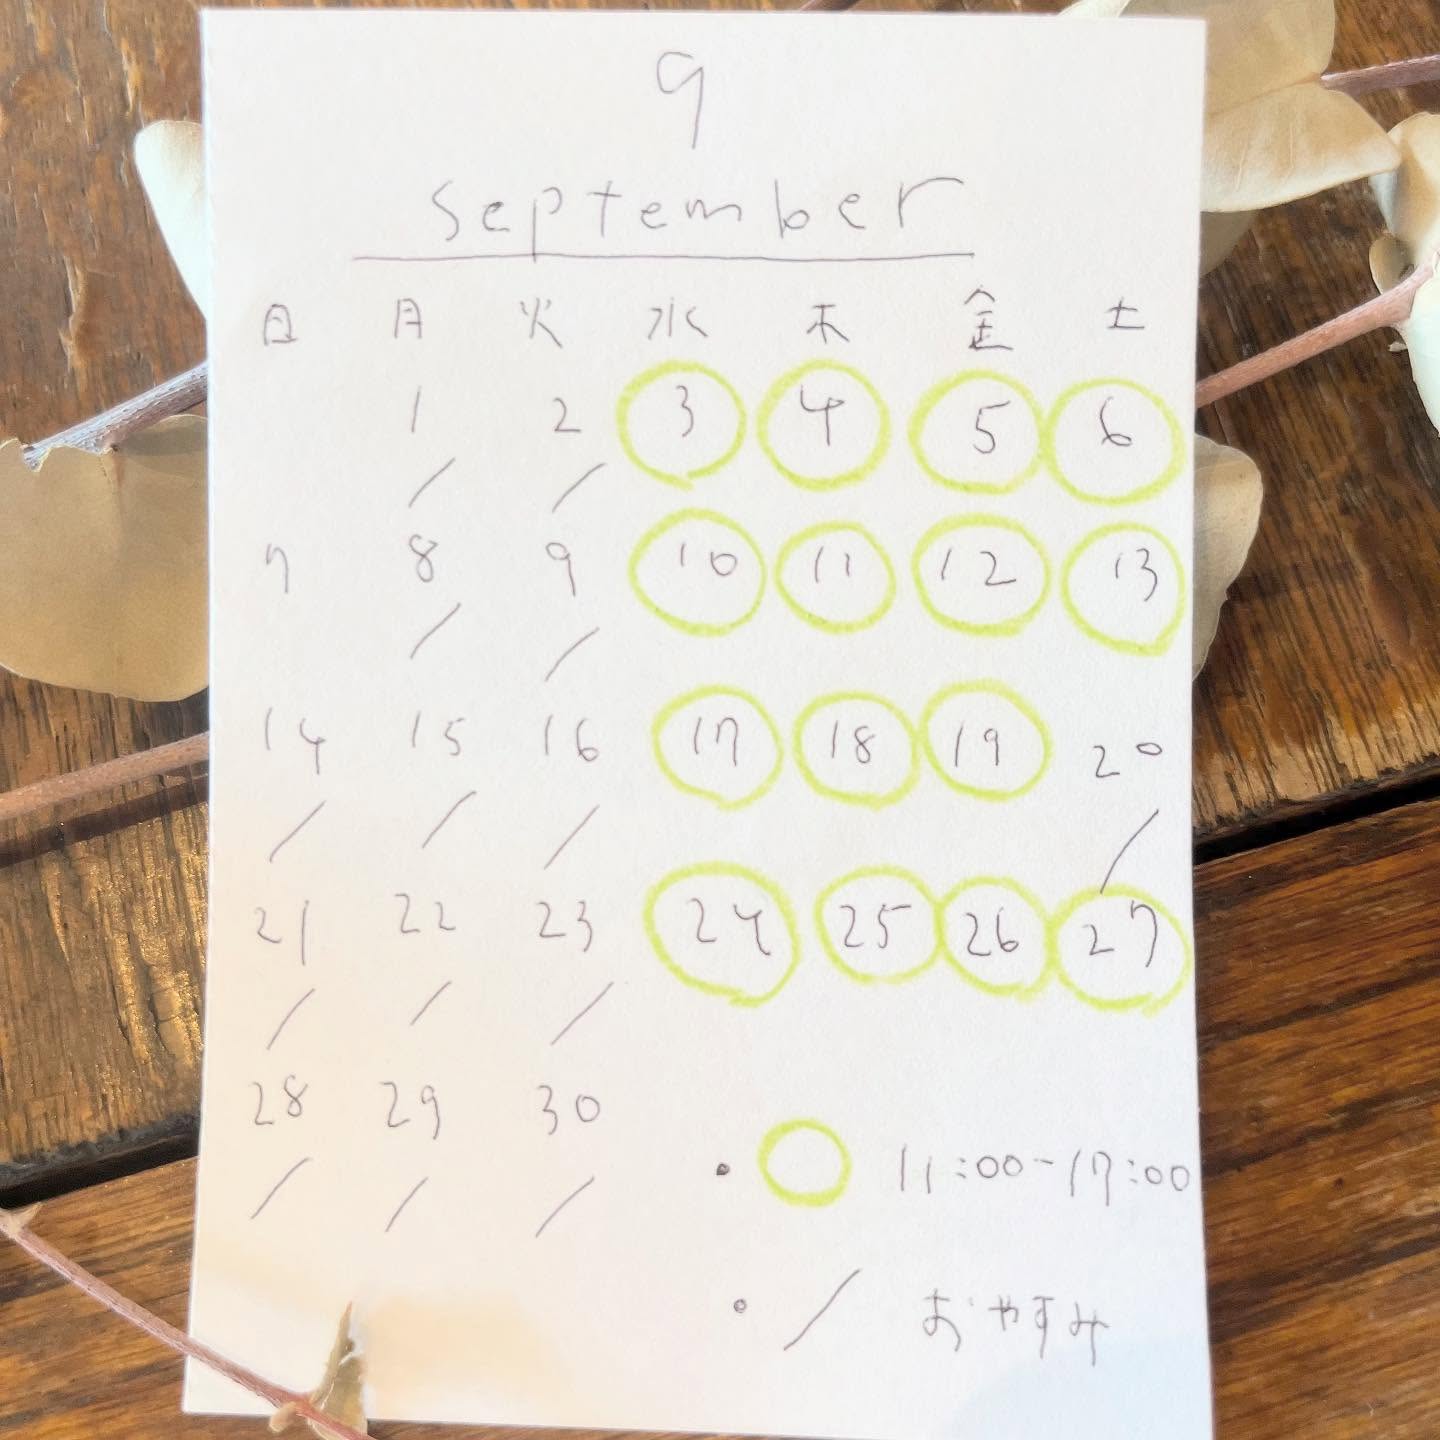 9
September
日 月 火 水 木 金 土
1 2 3 4 5 6
/ /
7 8 9 10 11 12 13
/ /
14 15 16 17 18 19 20
/ / / /
21 22 23 24 25 26 27
/ / /
28 29 30
/ / /
・○ 11:00-17:00
・/ おやすみ